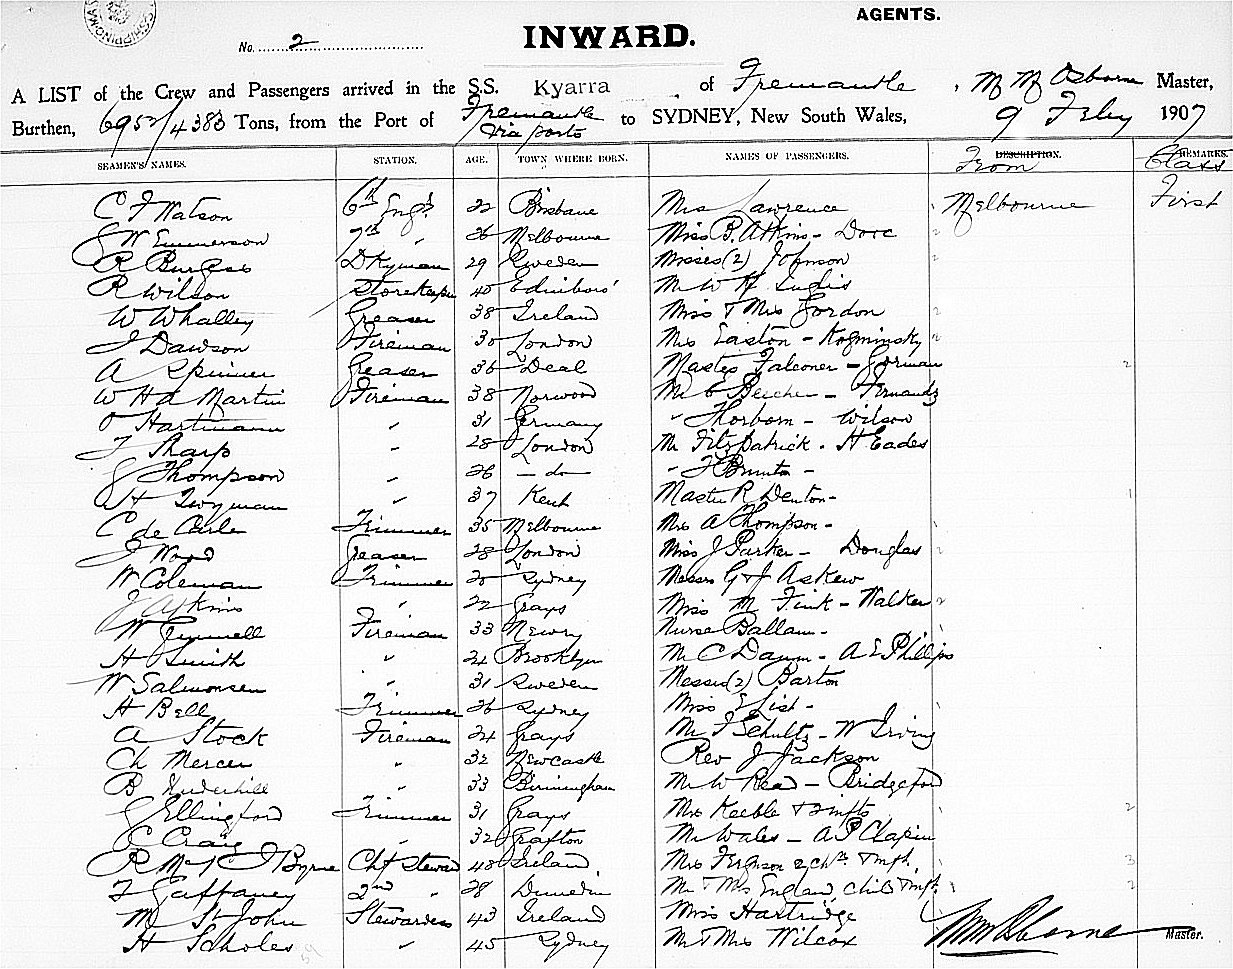 AGENTS.
No. 2
INWARD.
A LIST of the Crew and Passengers arrived in the S.S. Kyarra of Fremantle, Master,
Burthen, 6952/4383 Tons, from the Port of Fremantle via ports to SYDNEY, New South Wales, 9 Feby 1907
SEAMEN'S NAMES. STATION. AGE. TOWN WHERE BORN. NAMES OF PASSENGERS. DESCRIPTION. From REMARKS. Class
C F Watson 6th Engr 22 Brisbane Mrs Lawrence Melbourne First
J W Emmerson 7th " 26 Melbourne Miss B. Atkins - Dorc
R Burgess Dkyman 29 Sweden Misses (2) Johnson
R Wilson Storekeeper 40 Edinboro' Mr W H
W Whalley Greaser 38 Ireland Miss & Mrs Gordon
J Dawson Fireman 30 London Mrs Easton - Kozminsky
A Spinner Greaser 36 Deal Master Falconer - Gorman 2
W Hd Martin Fireman 38 Norwood Mr E - Fernandz
O Hartmann " 31 Germany " Thorborn - Wilson
F Sharp " 28 London Mr Fitzpatrick. H Eades
J Thompson " 26 - do - " F Brunton -
H Twyman " 37 Kent Master R Denton - 1
C de Carle Trimmer 35 Melbourne Mrs A Thompson -
J Wood Greaser 28 London Miss J Parker - Douglas
W Coleman Trimmer 20 Sydney Messrs G & J Askew
J Atkins " 22 Grays Miss M Fink - Walker
W Fireman 33 Newry Nurse Ballam -
H Smith " 24 Brooklyn Mr C Daum - A E Phillips
W Salmonsen " 31 Sweden Messrs (2) Barton
H Bell Trimmer 26 Sydney Miss E List -
A Stock Fireman 24 Grays Mr F Schultz - W Irving
Ch Mercer " 32 Newcastle Rev J Jackson
B Underhill " 33 Birmingham Mr W Read - Bridgeford
J Ellingford Trimmer 31 Grays Mrs Keeble & 2 infts 2
C Craig " 32 Grafton Mr Wales - A P Chapin
R McK J Byrne Chf Steward 48 Ireland Mrs Ferguson 2 chn & inft. 3
F Gaffaney 2nd " 28 Dunedin Mr & Mrs England, child & inft. 2
M St John Stewardess 43 Ireland Miss Hartridge
H Scholes " 45 Sydney Mr & Mrs Wilcox Master.